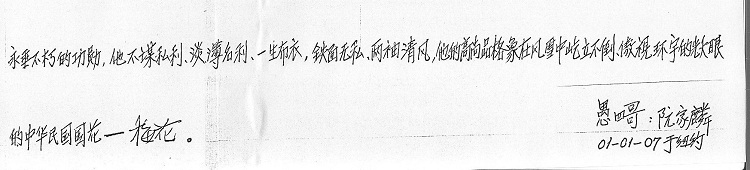 永垂不朽的功勋,他不谋私利、淡薄名利、一生布衣,铁面无私、两袖清风,他的高尚品格象在风雪中屹立不倒、傲视环宇的耀眼
的中华民国国花——梅花。
愚四哥:阮家麟
01-01-07于纽约